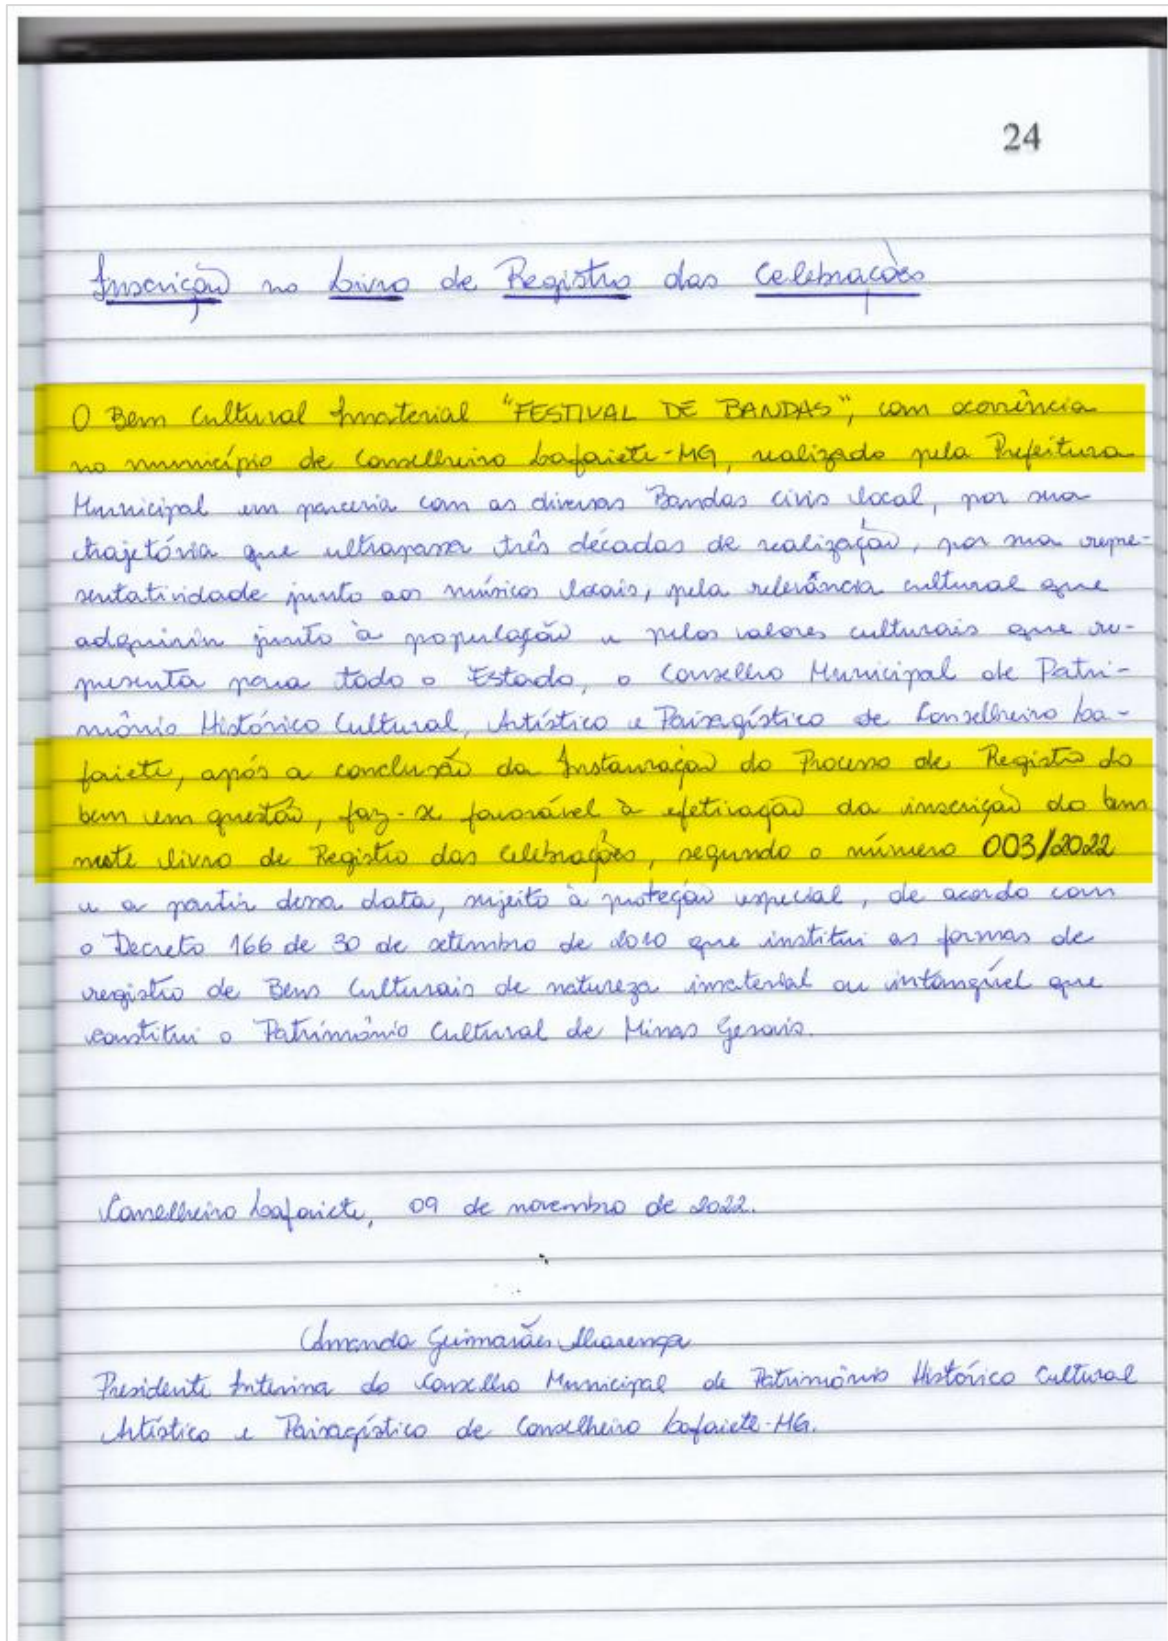 24
Inscrição no Livro de Registro das Celebrações
O Bem Cultural Imaterial "FESTIVAL DE BANDAS", com ocorrência
no município de Conselheiro Lafaiete-MG, realizado pela Prefeitura
Municipal em parceria com as diversas Bandas civis local, por sua
trajetória que ultrapassa três décadas de realização, por sua repre-
sentatividade junto aos músicos locais, pela relevância cultural que
adquirin junto à população e pelos valores culturais que re-
presenta para todo o Estado, o Conselho Municipal de Patri-
mônio Histórico Cultural, Artístico e Paisagístico de Conselheiro La-
faiete, após a conclusão da Instauração do Processo de Registro do
bem em questão, faz-se favorável à efetivação da inscrição do bem
neste livro de Registro das Celebrações, segundo o número 003/2022
e a partir dessa data, sujeito à proteção especial, de acordo com
o Decreto 166 de 30 de setembro de 2010 que institui as formas de
registro de Bens Culturais de natureza imaterial ou intangível que
constitui o Patrimônio Cultural de Minas Gerais.
Conselheiro Lafaiete, 09 de novembro de 2022.
Amanda Guimarães Alvarenga
Presidente Interina do Conselho Municipal de Patrimônio Histórico Cultural
Artístico e Paisagístico de Conselheiro Lafaiete-MG.